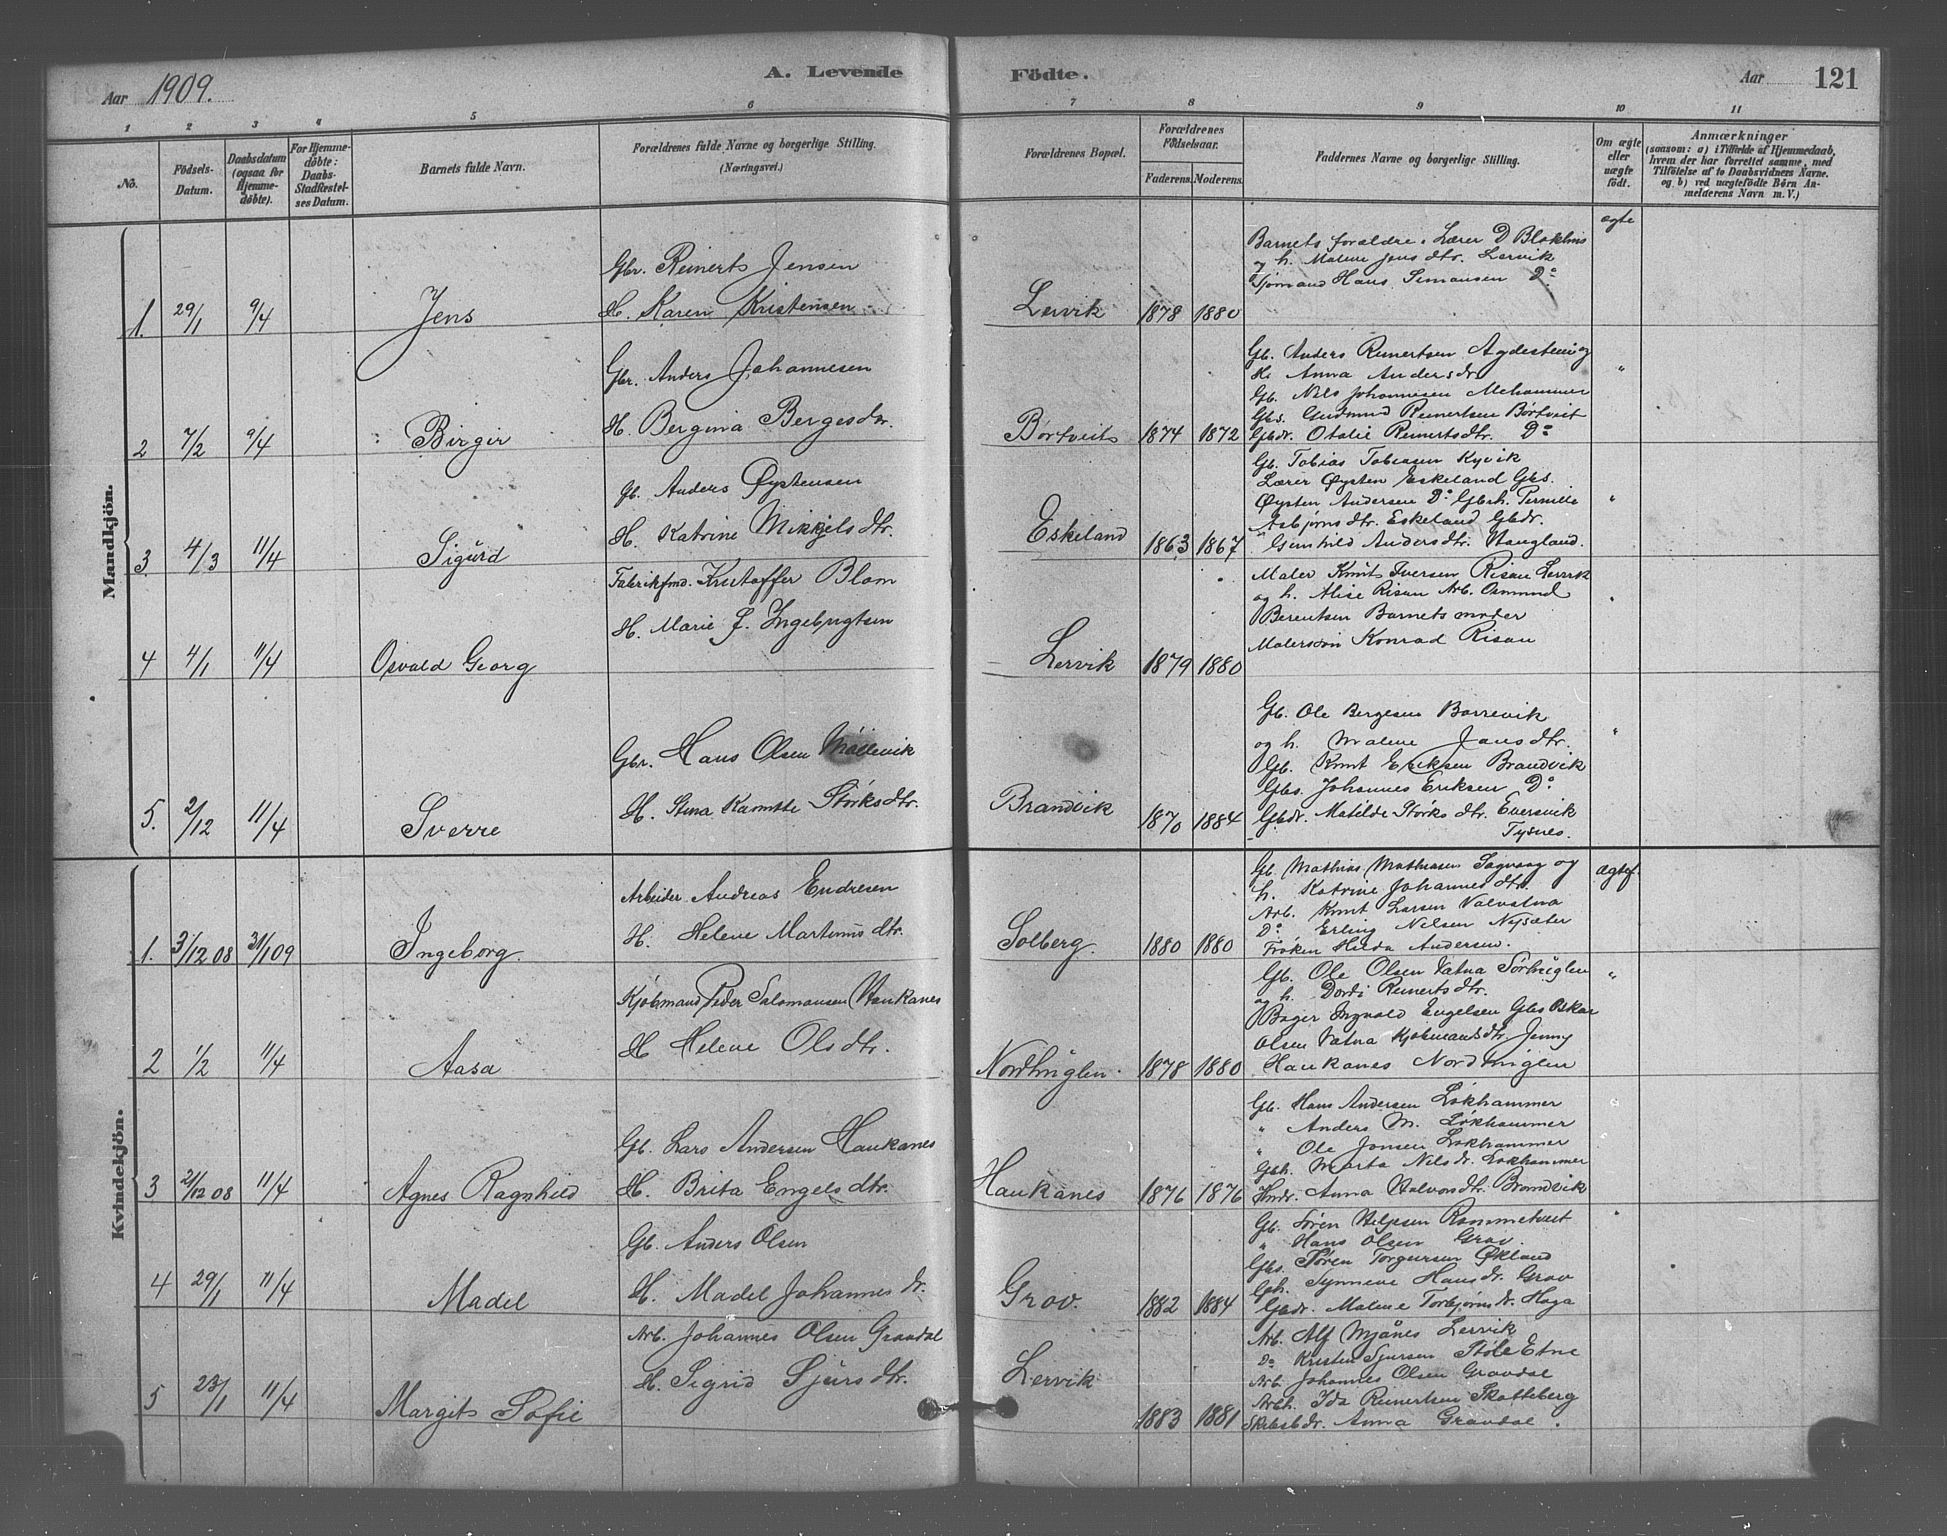 Aar 1909.
A. Levende Födte.
Aar 121
1 2 3 4 5 6 7 8 9 10 11
No.
Födsels-Datum.
Daabsdatum (ogsaa for Hjemme-döbte).
For Hjemme-döbte: Daabs-Stadfæstel-ses Datum.
Barnets fulde Navn.
Forældrenes fulde Navne og borgerlige Stilling. (Næringsvei.)
Forældrenes Bopæl.
Forældrenes Födselsaar.
Faderens. Moderens.
Faddernes Navne og borgerlige Stilling.
Om ægte eller uægte födt.
Anmærkninger
(saasom: a) i Tilfælde af Hjemmedaab, hvem der har forrettet samme, med Tilföielse af to Daabsvidners Navne. og b) ved uægtefödte Börn An-melderens Navn m. V.)
Mandkjön.
1. 29/1 9/4 Jens
Gbr. Reinerts Jensen
H. Karen Kristensen
Lervik 1878 1880
Barnets forældre. Lærer D Blokhus
og h. Malene Jens dtr. Lervik
Sjømand Hans Simonsen Do
ægte
2 7/2 9/4 Birgir
Gbr. Anders Johannesen
H. Bergina Bergesdtr.
Børtveit 1874 1872
Gb. Anders Reinertsen Agdestein og
H. Anna Andersdtr
Gb. Nils Johannesen Mehammer
Gbs. Gudmund Reinertsen Børtveit
Gbdr. Otalie Reinertsdtr. Do
"
3 4/3 11/4 Sigurd
Gb. Anders Øystensen
H. Katrine Mikkjels dtr.
Eskeland 1863 1867
Gb. Tobias Tobiasen Kyvik
Lærer Øysten Eskeland Gbs.
Øysten Andersen Do Gbrh. Pernille
Asbjørnsdtr. Eskeland Gbdr.
Gunhild Andersdtr. Haugland.
"
4 4/1 11/4 Osvald Georg
Fabrikfmd. Kristoffer Blom
H. Marie J. Ingebrigtsen
Lervik 1879 1880
Maler Knut Iversen Risan Lervik
og h. Alise Risan Arb. Osmund
Berentsen Barnets moder
Malersøn Konrad Risan
"
5. 2/12 11/4 Sverre
Gbr. Hans Olsen Møllevik
H. Stina Kamitte Størksdtr.
Brandvik 1870 1884
Gb. Ole Bergesen Borrevik
og h. Malene Jansdtr.
Gb. Knut Eriksen Brandvik
Gbs. Johannes Eriksen Do
Gbdr. Matilde Størks dtr. Eversvik
Tysnes.
"
Kvindekjön.
1. 3/12 08 31/1 09 Ingeborg.
Arbeider Andreas Endresen
H. Helene Martinus dtr.
Solberg. 1880 1880
Gb. Mathias Mathiasen Sagvaag og
h. Katrine Johannes dtr.
Arb. Knut Larsen Valvatna
Do Erling Nilsen Nysæter
Frøken Hilda Andersen.
ægtef.
2 1/2 11/4 Aasa
Kjøbmand Peder Salomonsen Haukanes
H Helene Ols dtr.
Nordhuglen. 1878 1880
Gb. Ole Olsen Vatna Sørhuglen
og h. Dordi Reinertsdtr.
Bager Ingvald Engelsen Gbs Oskar
Olsen Vatna Kjøbmandsdtr. Jenny
Haukanes Nordhuglen
"
3 21/12 08 11/4 Agnes Ragnhild
Gb. Lars Andersen Haukanes
H. Brita Engels dtr.
Haukanes 1876 1876
Gb. Hans Andersen Løkhammer
" Anders M. Løkhammer
" Ole Jonsen Løkhammer
Gbh. Marta Nilsdr. Løkhammer
Hmdr. Anna Halvorsdtr. Brandvik
4 29/1 11/4 Madel
Gb. Anders Olsen
H. Madel Johannes dr.
Grov. 1882 1884
Gb. Søren Helgesen Rommetveit
" Hans Olsen Grov.
Gbs. Søren Torgersen Økland
Gbh. Synneve Hansdr. Grov
Gbdr. Malene Torbjørnsdr. Haga
"
5 23/1 11/4 Margit Sofie
Arb. Johannes Olsen Gravdal
H. Sigrid Sjurs dtr.
Lervik 1883 1881
Arb. Alf Mjånes Lervik
Do Kristen Sjursen Støle Etne
Arb. Johannes Olsen Gravdal
Arbh. Ida Reinertsen Skatteberg
Anna Gravdal.